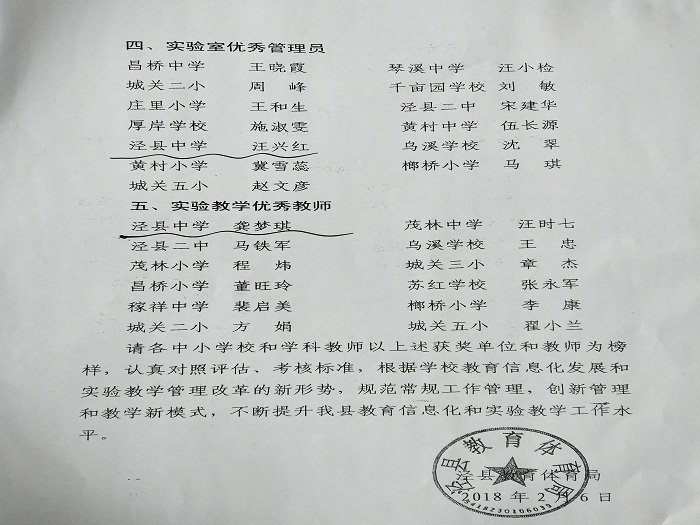 四、实验室优秀管理员
昌桥中学 王晓霞 琴溪中学 汪小检
城关二小 周 峰 千亩园学校 刘 敏
庄里小学 王和生 泾县二中 宋建华
厚岸学校 施淑雯 黄村中学 伍长源
泾县中学 汪兴红 乌溪学校 沈 翠
黄村小学 冀雪蕊 榔桥小学 马 琪
城关五小 赵文彦
五、实验教学优秀教师
泾县中学 龚梦琪 茂林中学 汪时七
泾县二中 马铁军 乌溪学校 王 忠
茂林小学 程 炜 城关三小 章 杰
昌桥小学 董旺玲 苏红学校 张永军
稼祥中学 裴启美 榔桥小学 李 康
城关二小 方 娟 城关五小 翟小兰
请各中小学校和学科教师以上述获奖单位和教师为榜
样，认真对照评估、考核标准，根据学校教育信息化发展和
实验教学管理改革的新形势，规范常规工作管理，创新管理
和教学新模式，不断提升我县教育信息化和实验教学工作水
平。
泾县教育体育局
泾县教育体育局
2018 年 2 月 6 日
3418230106039